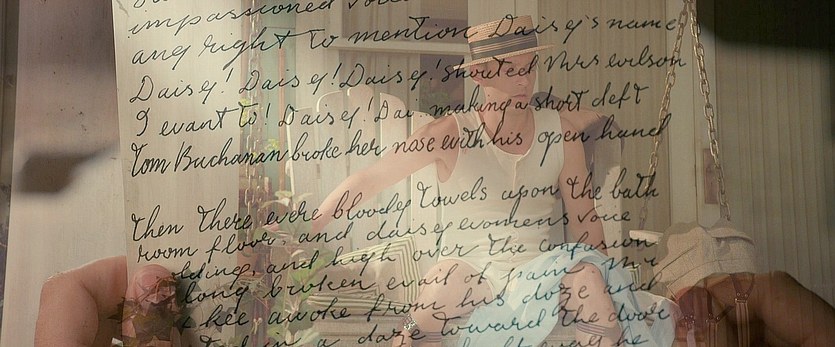 impassioned voice
any right to mention Daisey's name
Daisey! Daisey! Daisey! shouted Mrs wilson
I want to! Daisey! Dai.. making a short deft
Tom Buchanan broke her nose with his open hand
then there were bloody towels upon the bath
room floor, and daisey womens voice
olding, and high over the confusion
long broken wail of pain. Mr
kee awoke from his doze and
in a daze toward the door